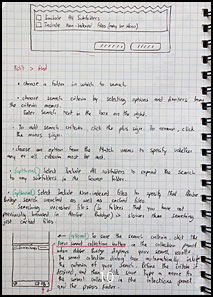 Include All Subfolders
Include Non-indexed Files (may be slow)
Edit > Find
• choose a folder in which to search.
• choose search criteria by selecting options and limiters from
the criteria menus.
Enter search text in the box on the right.
• To add search criteria, click the plus sign. To remove, click
the minus sign.
• choose an option from the Match menu to specify whether
any or all criteria must be met.
• (optional) Select Include All Subfolders to expand the search
to any subfolders in the source folder.
• (optional) Select Include Non-indexed files to specify that Adobe
Bridge search uncached as well as cached files.
Searching uncached files (in folders that you have not
previously browsed in Adobe Bridge) is slower than searching
just cached files.
← (optional) To save the search criteria, click the
New smart collection button in the collection panel
when Adobe Bridge displays your search results.
the smart collection dialog box automatically includes
the criteria of your search. Refine the criteria if
desired, and then click save. Type a name for
the smart collection in the collections panel
and the press Enter.